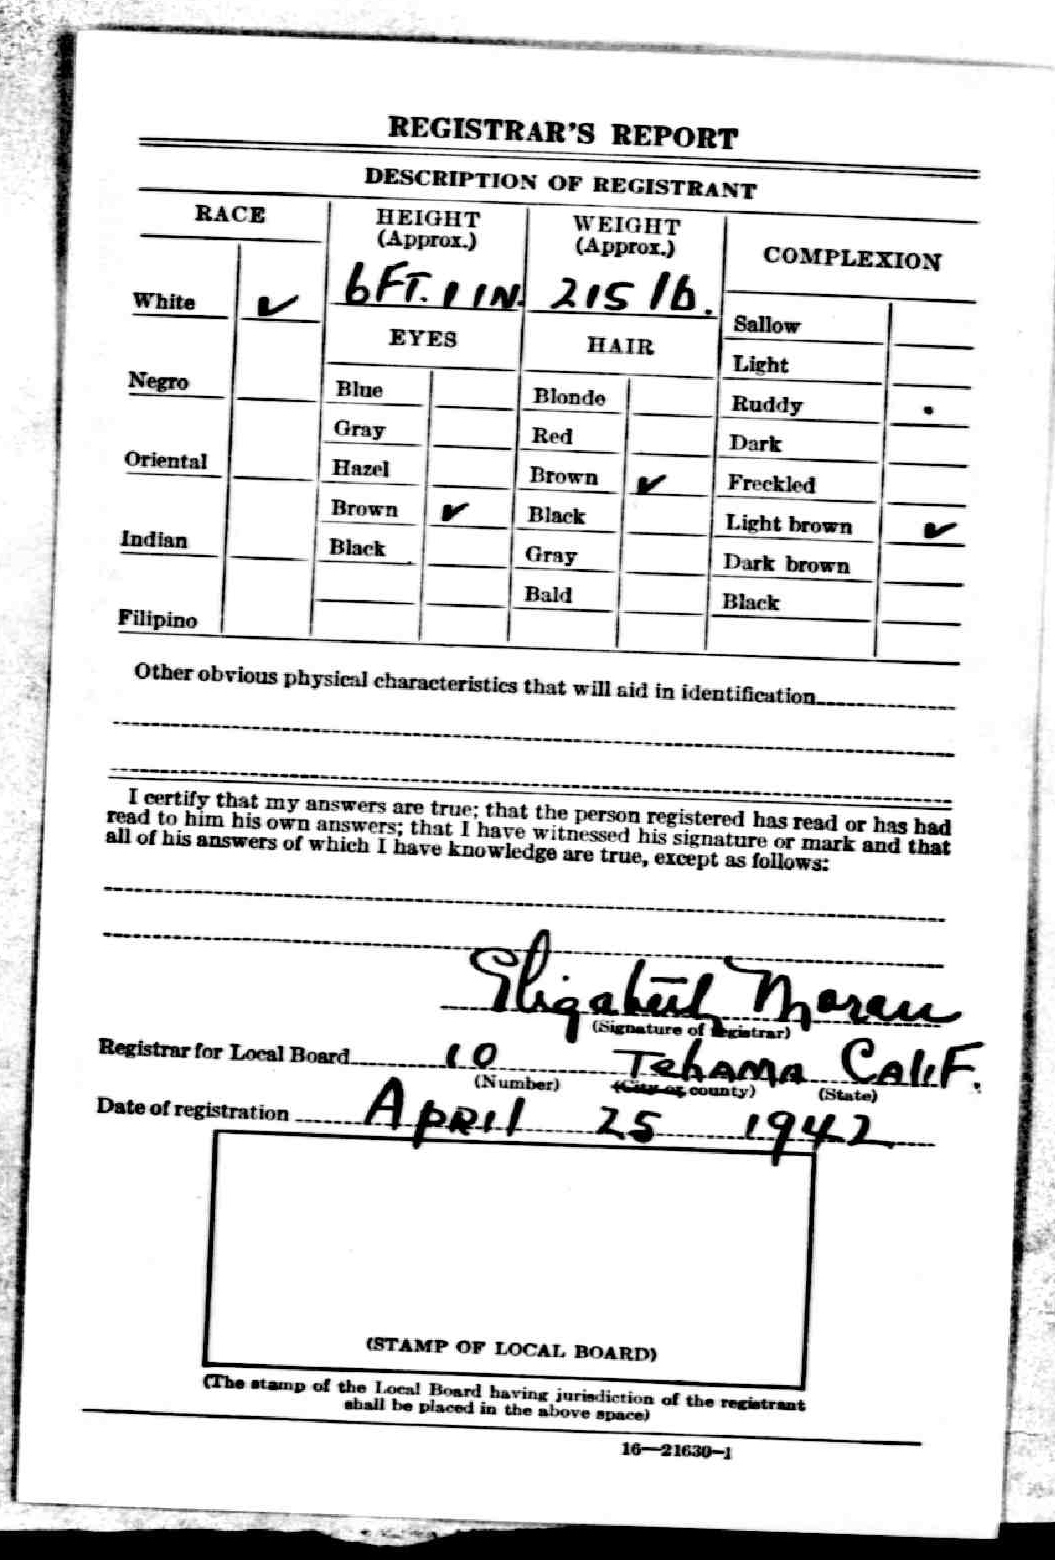 REGISTRAR'S REPORT
DESCRIPTION OF REGISTRANT
RACE
HEIGHT
(Approx.)
WEIGHT
(Approx.)
COMPLEXION
6 FT. 1 IN.
215 lb.
White ✓
Sallow
EYES
HAIR
Light
Negro
Blue
Blonde
Ruddy .
Gray
Red
Dark
Oriental
Hazel
Brown ✓
Freckled
Brown ✓
Black
Light brown ✓
Indian
Black
Gray
Dark brown
Bald
Black
Filipino
Other obvious physical characteristics that will aid in identification
I certify that my answers are true; that the person registered has read or has had
read to him his own answers; that I have witnessed his signature or mark and that
all of his answers of which I have knowledge are true, except as follows:
Elizabeth Moran
(Signature of registrar)
Registrar for Local Board 10 Tehama Calif.
(Number) (City or county) (State)
Date of registration April 25 1942
(STAMP OF LOCAL BOARD)
(The stamp of the Local Board having jurisdiction of the registrant
shall be placed in the above space)
16—21630-1